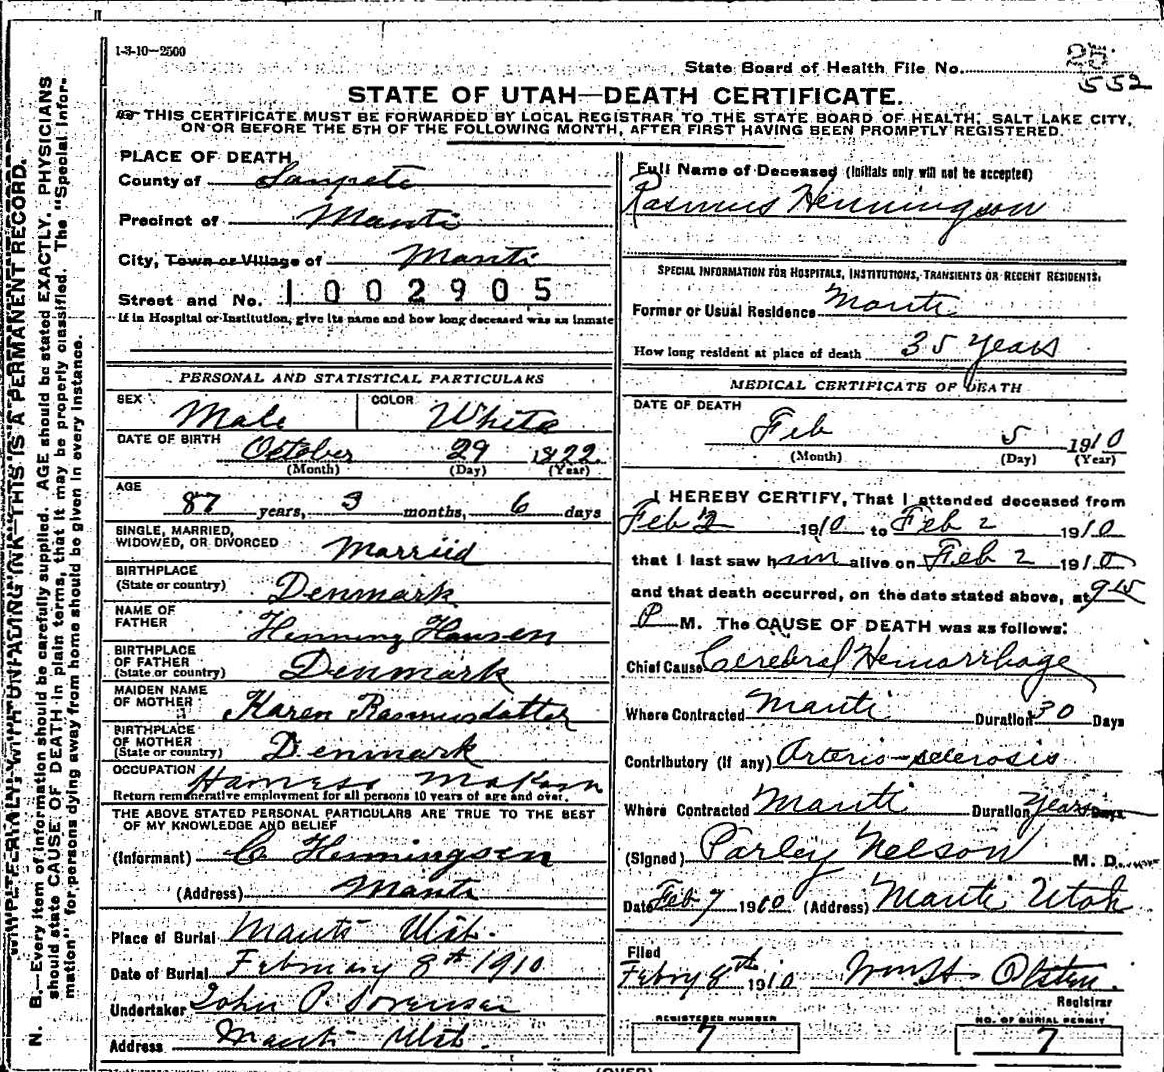 1-3-10—2500
State Board of Health File No.
552
STATE OF UTAH—DEATH CERTIFICATE.
THIS CERTIFICATE MUST BE FORWARDED BY LOCAL REGISTRAR TO THE STATE BOARD OF HEALTH, SALT LAKE CITY,
ON OR BEFORE THE 5TH OF THE FOLLOWING MONTH, AFTER FIRST HAVING BEEN PROMPTLY REGISTERED.
PLACE OF DEATH
County of Sanpete
Precinct of Manti
City, Town or Village of Manti
Street and No. 1002905
If in Hospital or Institution, give its name and how long deceased was an inmate
PERSONAL AND STATISTICAL PARTICULARS
SEX Male COLOR White
DATE OF BIRTH October 29 1822
(Month) (Day) (Year)
AGE
87 years, 3 months, 6 days
SINGLE, MARRIED,
WIDOWED, OR DIVORCED Married
BIRTHPLACE
(State or country) Denmark
NAME OF
FATHER Henning Hansen
BIRTHPLACE
OF FATHER
(State or country) Denmark
MAIDEN NAME
OF MOTHER Karen Rasmusdatter
BIRTHPLACE
OF MOTHER
(State or country) Denmark
OCCUPATION Harness Maker
Return remunerative employment for all persons 10 years of age and over.
THE ABOVE STATED PERSONAL PARTICULARS ARE TRUE TO THE BEST
OF MY KNOWLEDGE AND BELIEF
(Informant) C Henningsen
(Address) Manti
Place of Burial Manti Utah.
Date of Burial February 8th 1910
Undertaker John P. Sorensen
Address Manti Utah.
Full Name of Deceased (Initials only will not be accepted)
Rasmus Henningson
SPECIAL INFORMATION FOR HOSPITALS, INSTITUTIONS, TRANSIENTS OR RECENT RESIDENTS.
Former or Usual Residence Manti
How long resident at place of death 35 years
MEDICAL CERTIFICATE OF DEATH
DATE OF DEATH
Feb 5 1910
(Month) (Day) (Year)
I HEREBY CERTIFY, That I attended deceased from
Feb 2 1910 to Feb 2 1910
that I last saw him alive on Feb 2 1910
and that death occurred, on the date stated above, at 9 15
P M. The CAUSE OF DEATH was as follows:
Chief Cause Cerebral Hemorrhage
Where Contracted Manti Duration 30 Days
Contributory (if any) Arterio-sclerosis
Where Contracted Manti Duration years Days
(Signed) Parley Nelson M. D.
Date Feb 7 1910 (Address) Manti Utah
Filed
Febry 8th 1910 Wm H. Olsten.
Registrar
REGISTERED NUMBER
7
NO. OF BURIAL PERMIT
7
(OVER)
WRITE PLAINLY, WITH UNFADING INK—THIS IS A PERMANENT RECORD.
N. B.—Every item of information should be carefully supplied. AGE should be stated EXACTLY. PHYSICIANS
should state CAUSE OF DEATH in plain terms, that it may be properly classified. The "Special Infor-
mation" for persons dying away from home should be given in every instance.